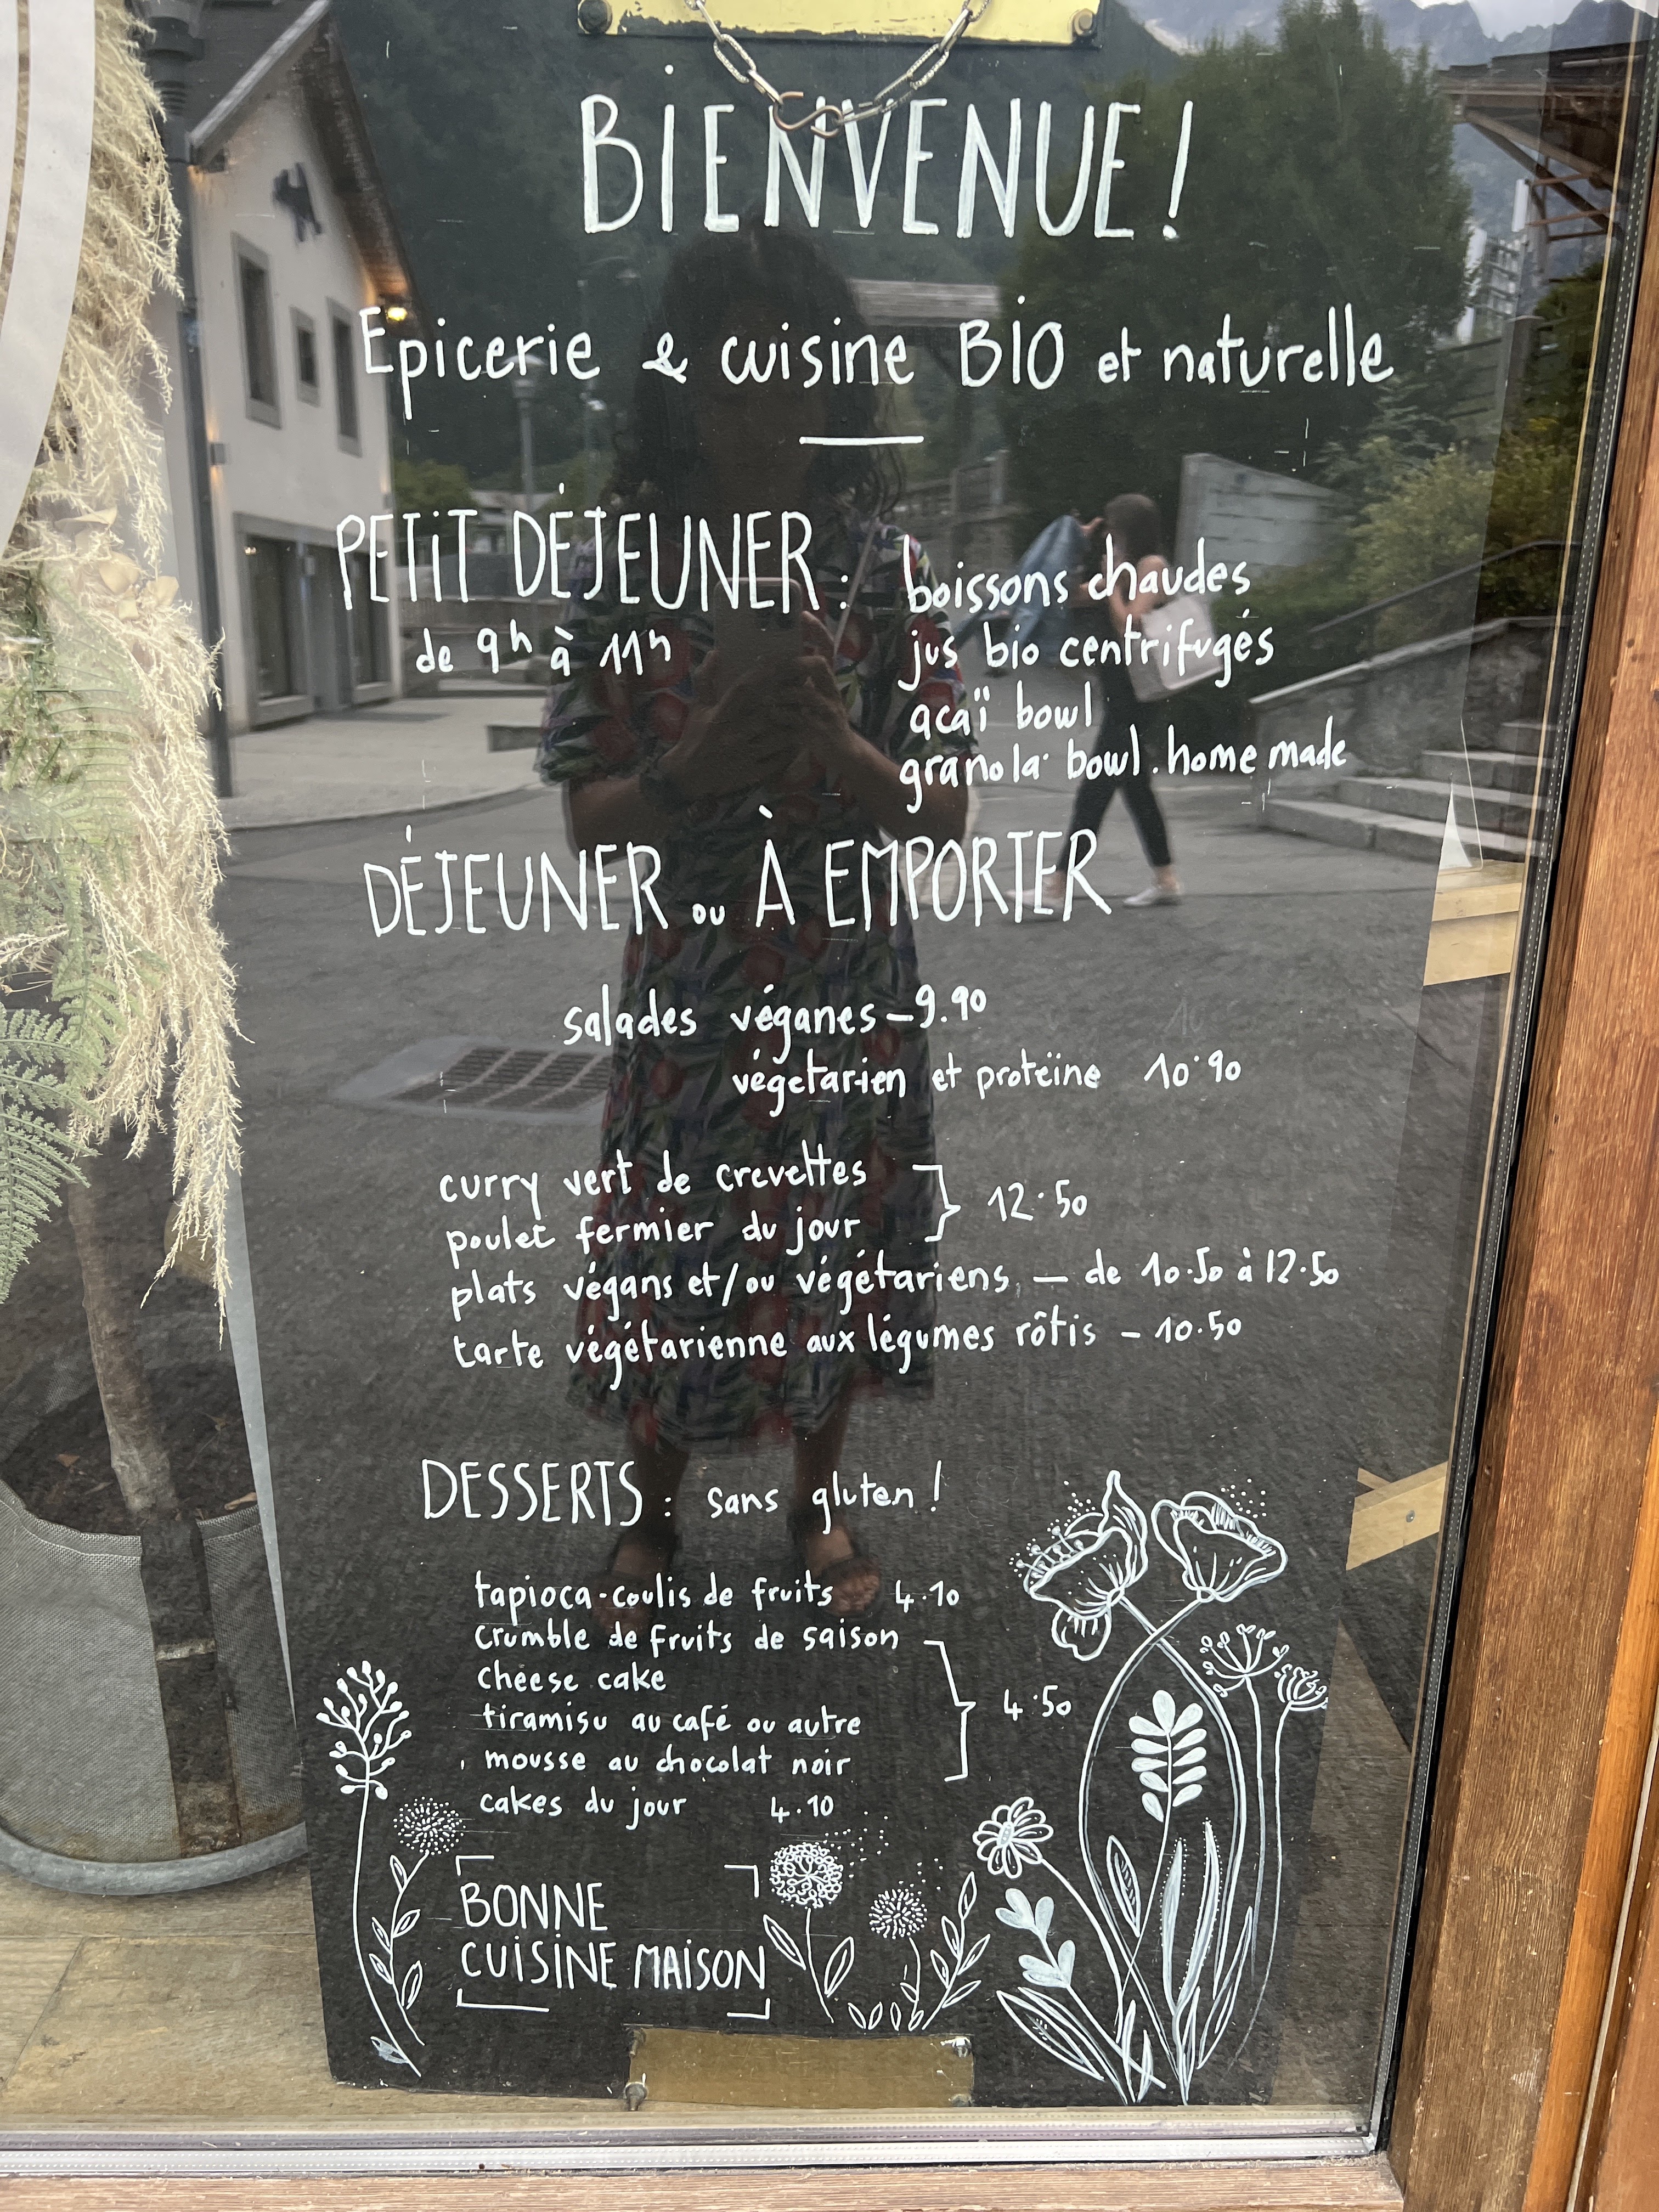 BIENVENUE !
Epicerie & cuisine BIO et naturelle
PETIT DÉJEUNER :
de 9h à 11h
boissons chaudes
jus bio centrifugés
açaï bowl
granola bowl. home made
DÉJEUNER ou À EMPORTER
salades véganes - 9.90
végetarien et protëine 10.90
curry vert de crevettes
poulet fermier du jour
12.50
plats végans et/ou végétariens - de 10.50 à 12.50
tarte végétarienne aux légumes rôtis - 10.50
DESSERTS : sans gluten !
tapioca-coulis de fruits 4.10
crumble de fruits de saison
cheese cake
tiramisu au café ou autre
mousse au chocolat noir
4.50
cakes du jour 4.10
BONNE
CUISINE MAISON